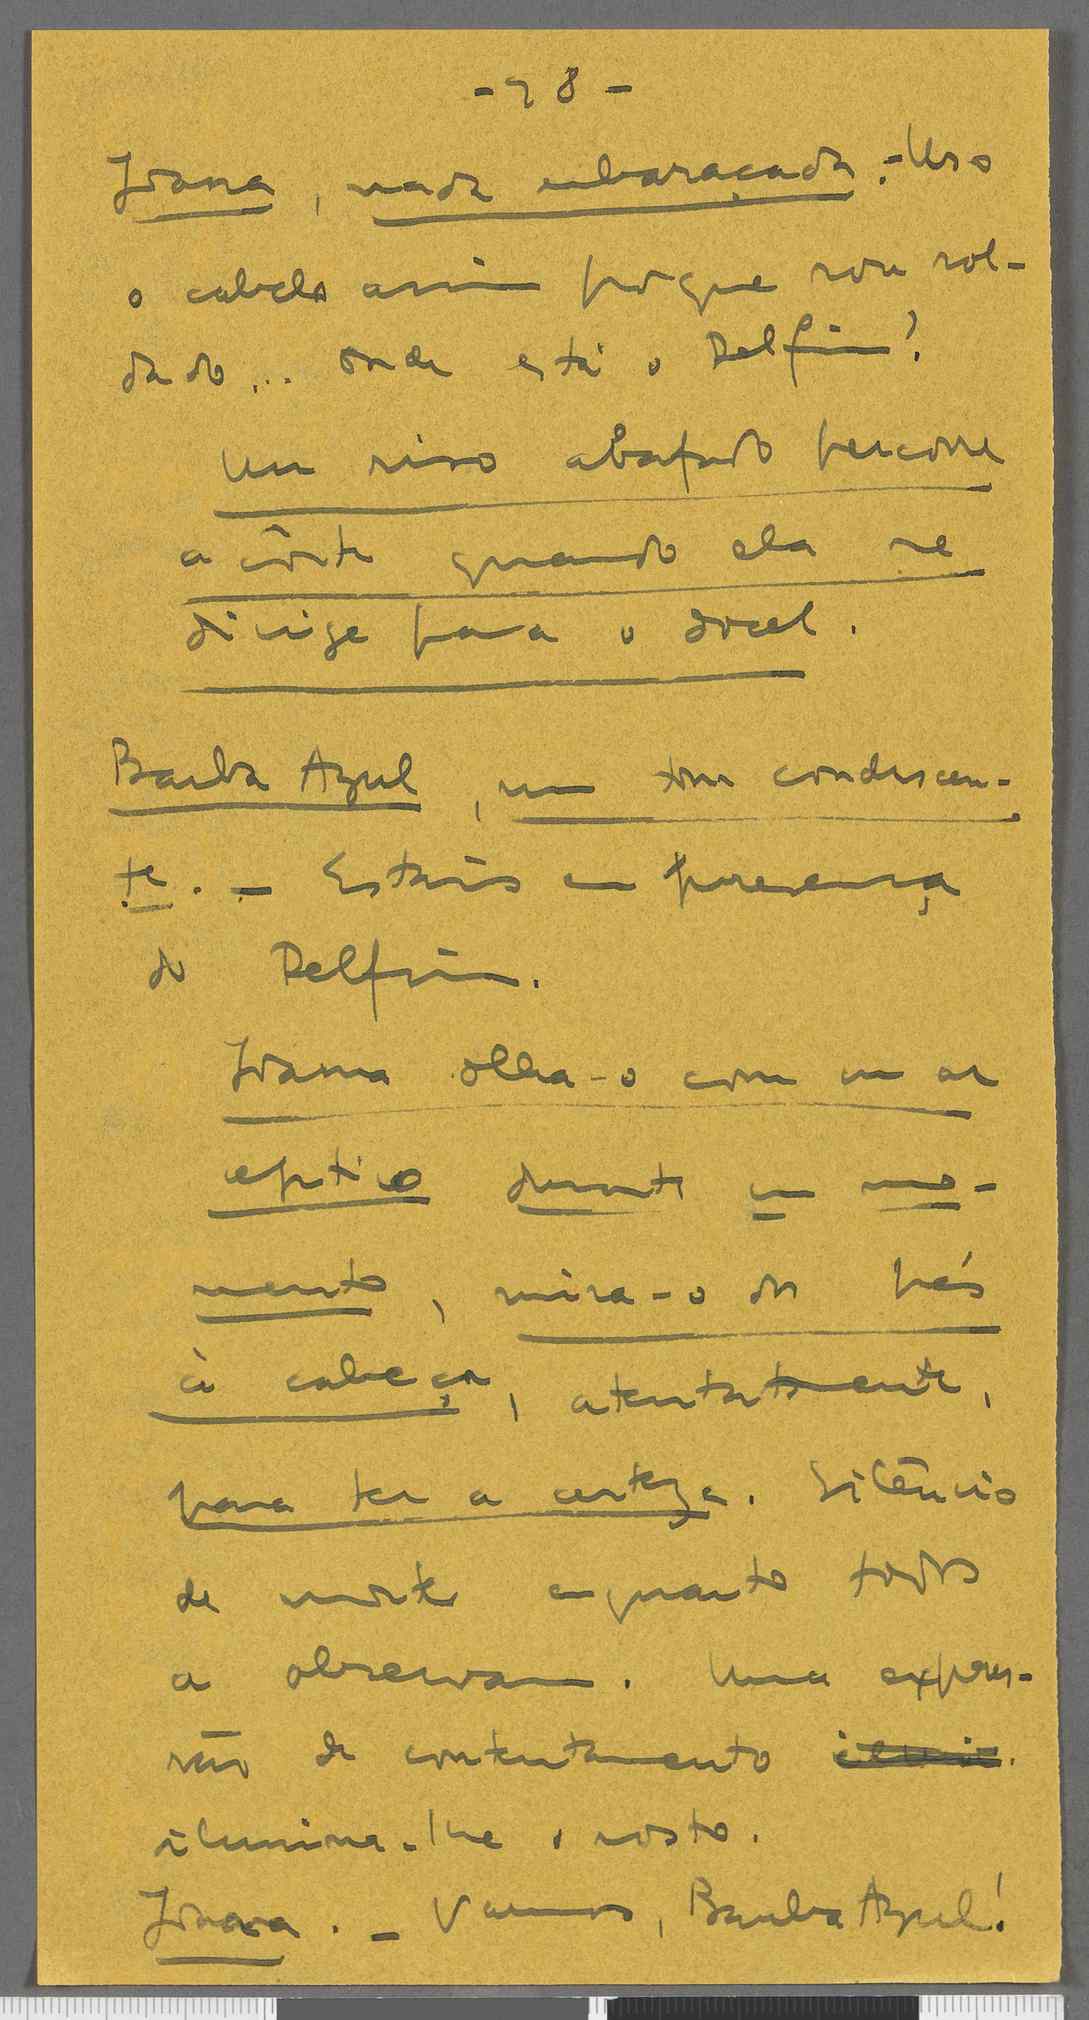 - 28 -
Joana, nada embaraçada: - Uso
o cabelo assim porque sou sol-
dado... Onde está o Delfim?
Um riso abafado percorre
a côrte quando ela se
dirige para o docel.
Barba Azul, num tom condescen-
te. - Estais em presença
do Delfim.
Joana olha-o com um ar
céptico durante um mo-
mento, mira-o dos pés
à cabeça, atentamente,
para ter a certeza. Silêncio
de morte enquanto todos
a observam. Uma expres-
são de contentamento
ilumina-lhe o rosto.
Joana. - Vamos, Barba Azul!